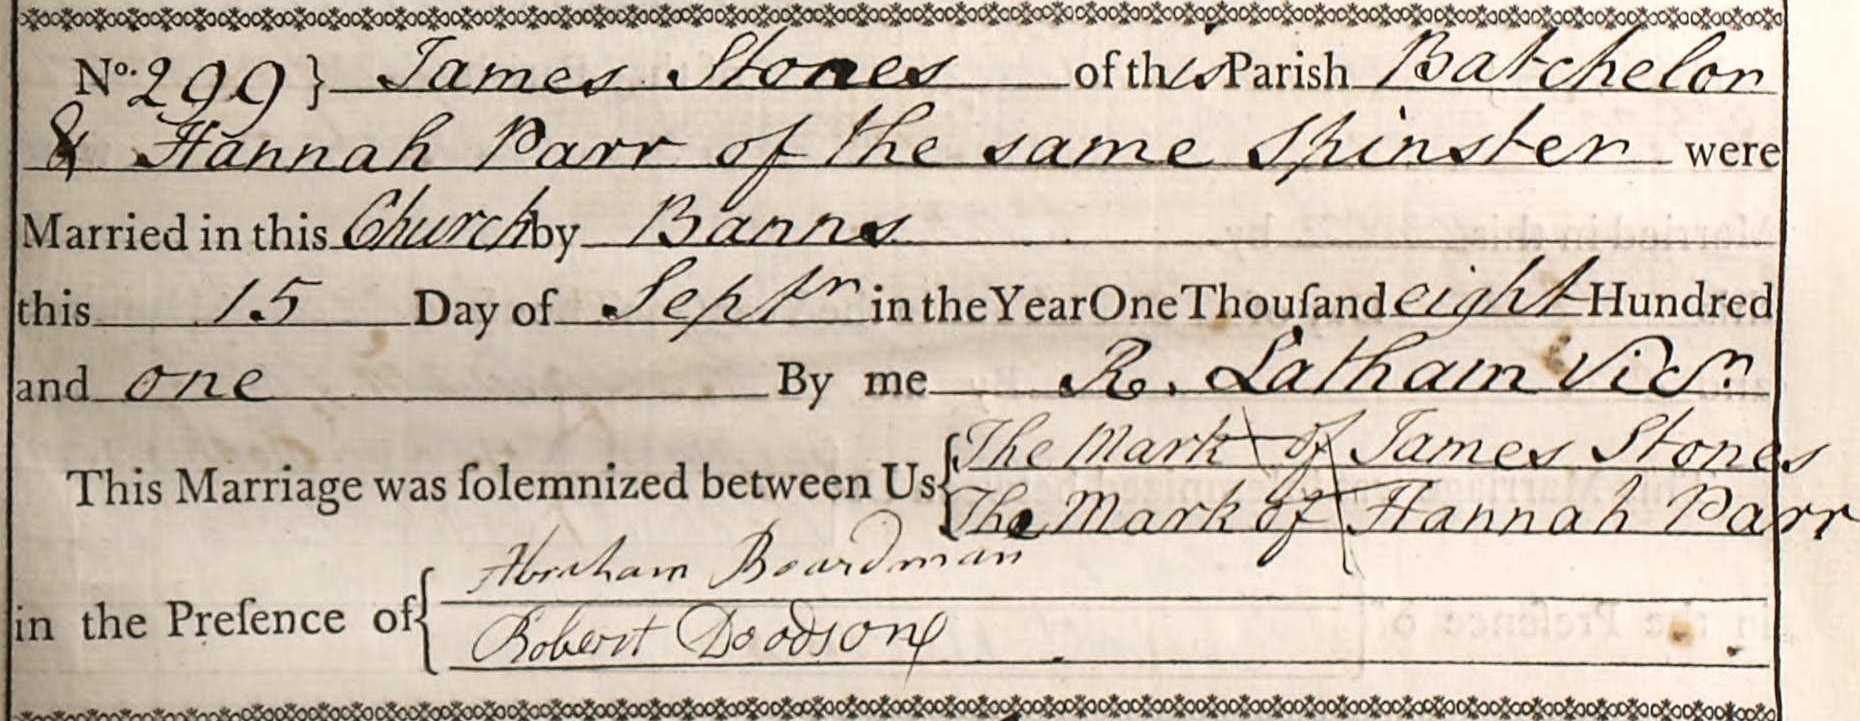 No. 299 } James Stones of this Parish Batchelor
& Hannah Parr of the same Spinster were
Married in this Church by Banns
this 15 Day of Septr in the Year One Thouſand eight Hundred
and one By me R. Latham Vicr.
This Marriage was ſolemnized between Us { The Mark of James Stones
The Mark of Hannah Parr
in the Preſence of { Abraham Boardman
Robert Doodson